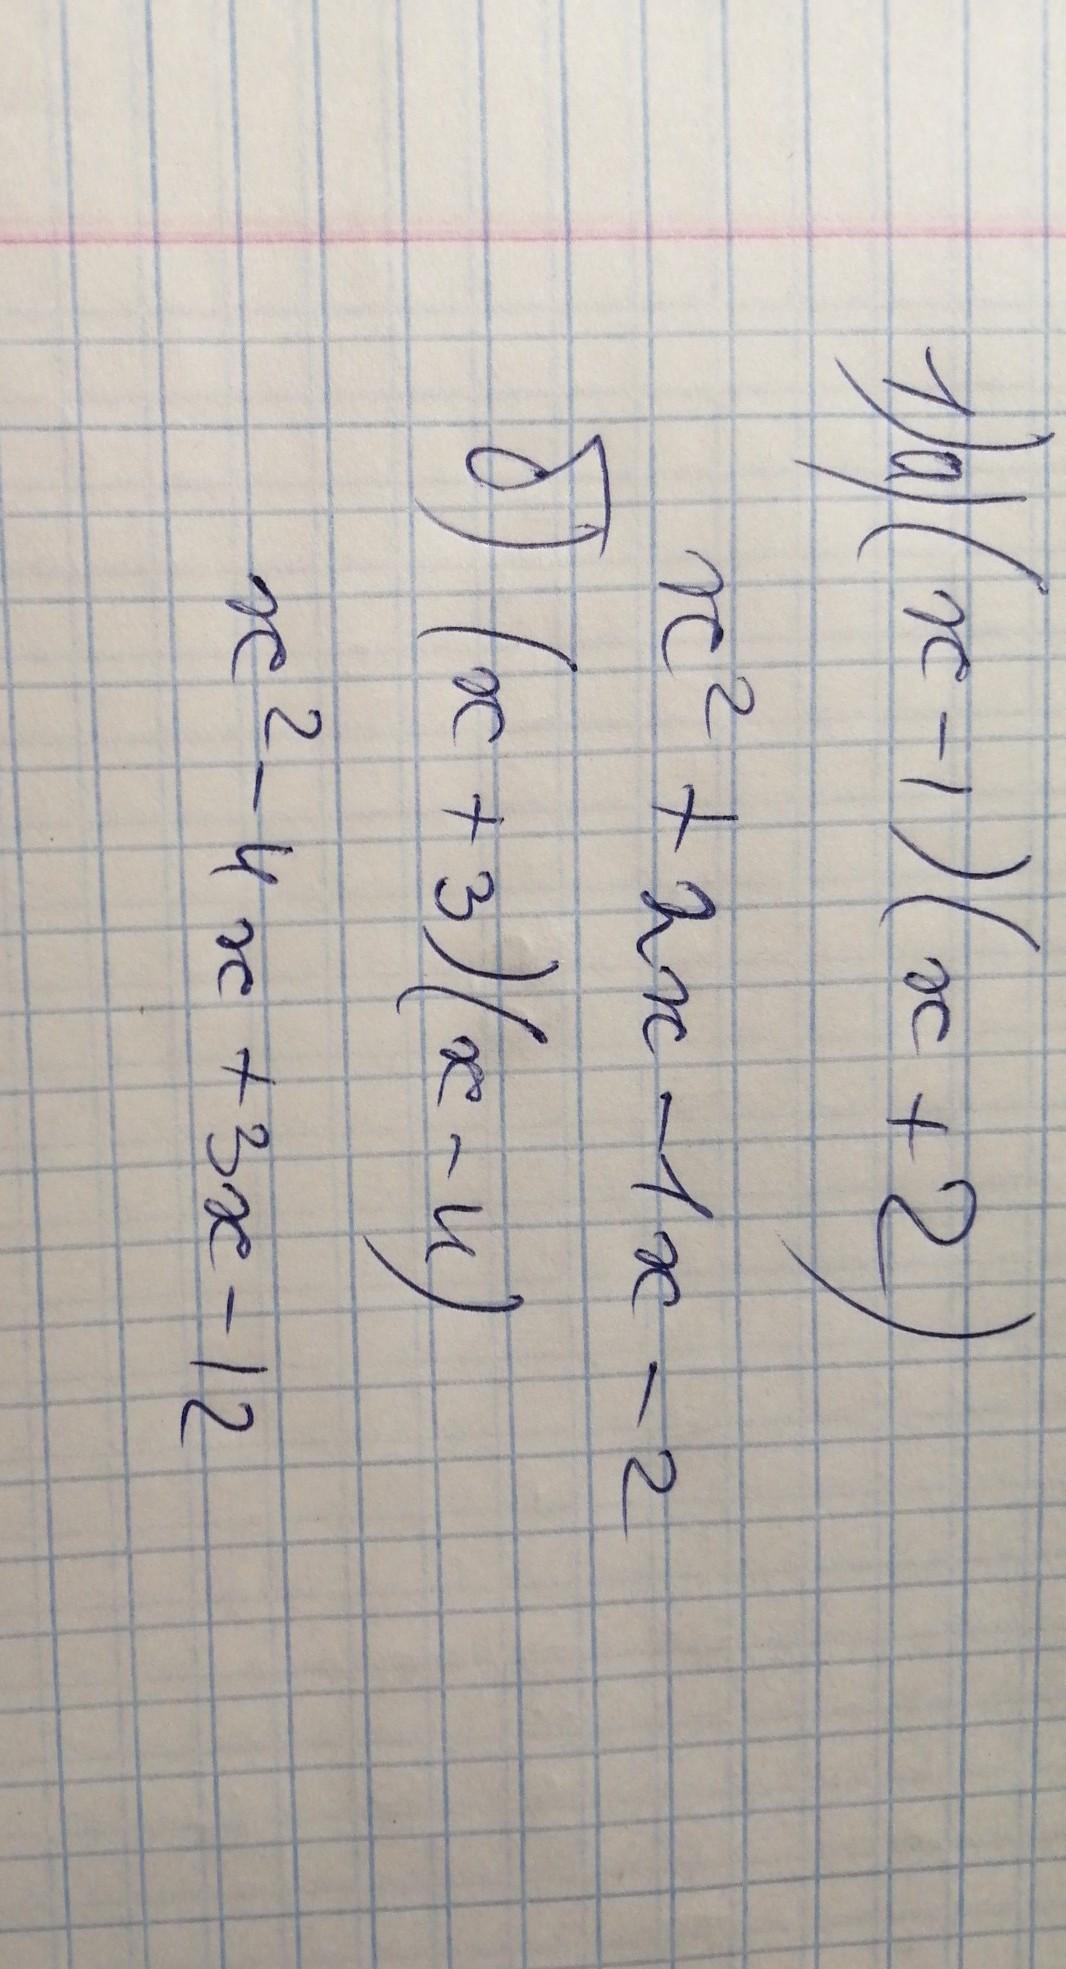 1) а) (x - 1)(x + 2)
x² + 2x - 1x - 2
б) (x + 3)(x - 4)
x² - 4x + 3x - 12